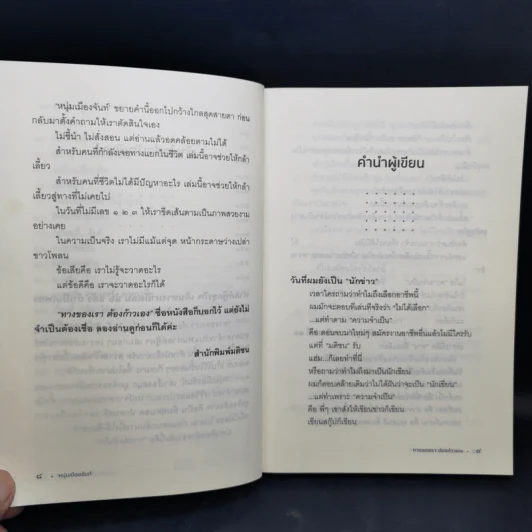 'หนุ่มเมืองจันท์' ขยายคำนี้ออกไปกว้างไกลสุดสายตา ก่อน
กลับมาตั้งคำถามให้เราตัดสินใจเอง
ไม่ชี้นำ ไม่สั่งสอน แต่อ่านแล้วอดคล้อยตามไม่ได้
สำหรับคนที่กำลังเจอทางแยกในชีวิต เล่มนี้อาจช่วยให้กล้า
เลี้ยว
สำหรับคนที่ชีวิตไม่ได้มีปัญหาอะไร เล่มนี้อาจช่วยให้กล้า
เลี้ยวสู่ทางที่ไม่เคยไป
ในวันที่ไม่มีเลข ๑ ๒ ๓ ให้เราขีดเส้นตามเป็นภาพสวยงาม
อย่างเคย
ในความเป็นจริง เราไม่มีแม้แต่จุด หน้ากระดาษว่างเปล่า
ขาวโพลน
ข้อเสียคือ เราไม่รู้จะวาดอะไร
แต่ข้อดีคือ เราจะวาดอะไรก็ได้
"ทางของเรา ต้องก้าวเอง" ชื่อหนังสือก็บอกไว้ แต่ยังไม่
จำเป็นต้องเชื่อ ลองอ่านดูก่อนก็ได้ค่ะ
สำนักพิมพ์มติชน
๘ • หนุ่มเมืองจันท์
คำนำผู้เขียน
วันที่ผมยังเป็น "นักข่าว"
เวลาใครถามว่าทำไมถึงเลือกอาชีพนี้
ผมมักจะตอบทีเล่นทีจริงว่า "ไม่ได้เลือก"
...แต่ทำตาม "ความจำเป็น"
คือ ตอนจบมาใหม่ๆ สมัครงานอาชีพอื่นแล้วไม่มีใครรับ
แต่ที่ "มติชน" รับ
แฮ่ม...ก็เลยทำที่นี่
หรือถามว่าทำไมถึงมาเป็นนักเขียน
ผมก็ตอบคล้ายเดิมว่าไม่ได้ฝันว่าจะเป็น "นักเขียน"
...แต่ทำเพราะ "ความจำเป็น"
คือ พี่ๆ เขาสั่งให้เขียนข่าวก็เขียน
เขียนสกู๊ปก็เขียน
ทางของเรา ต้องก้าวเอง • ๙